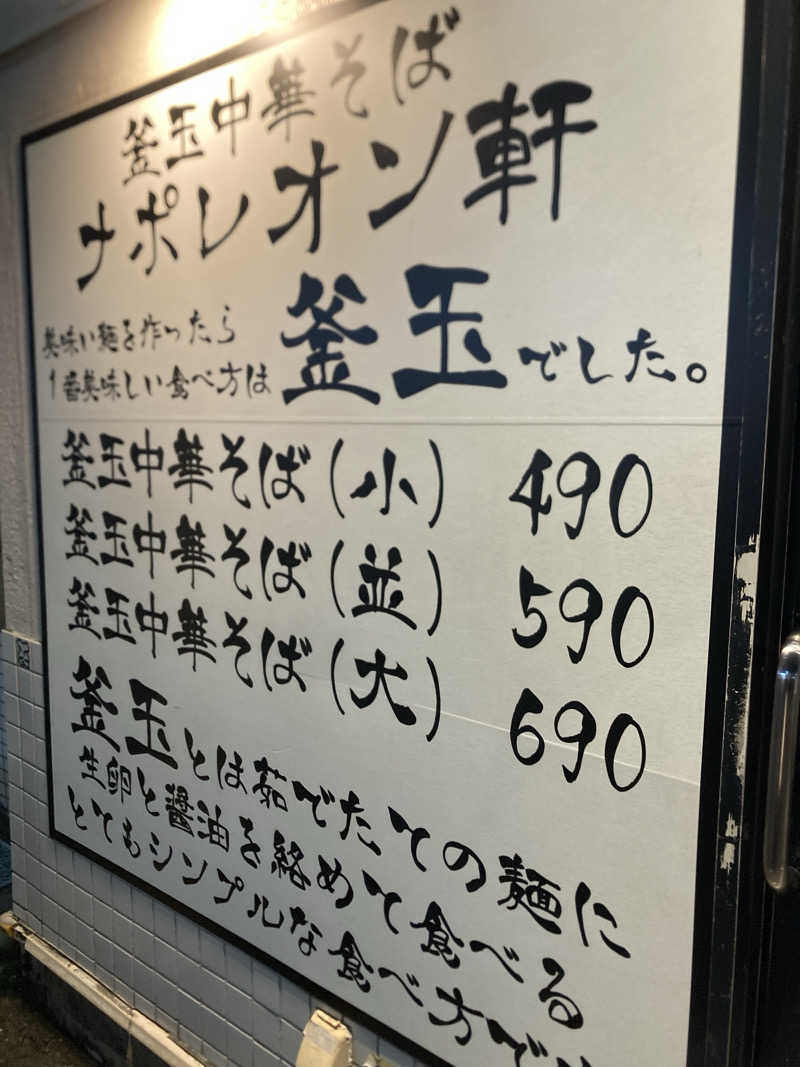 釜玉中華そば
ナポレオン軒
美味い麺を作ったら
1番美味しい食べ方は
釜玉でした。
釜玉中華そば(小) 490
釜玉中華そば(並) 590
釜玉中華そば(大) 690
釜玉とは茹でたての麺に
生卵と醤油を絡めて食べる
とてもシンプルな食べ方で